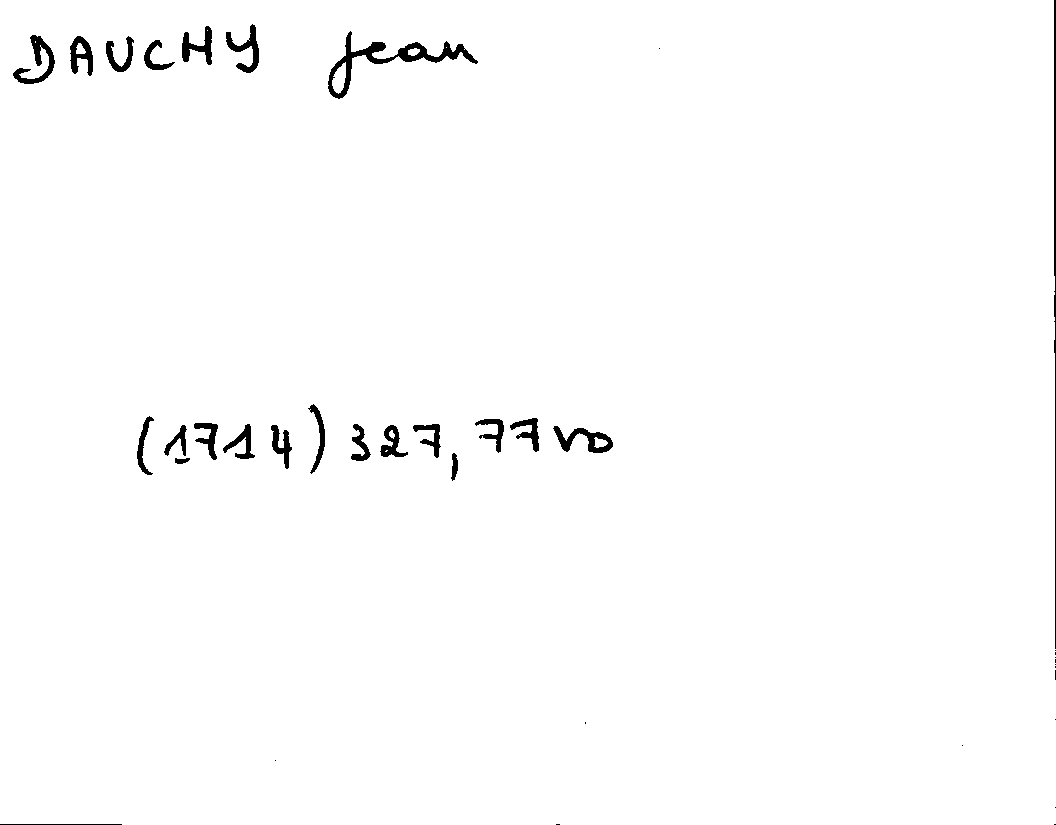 DAUCHY Jean
(1714) 327, 77 vo